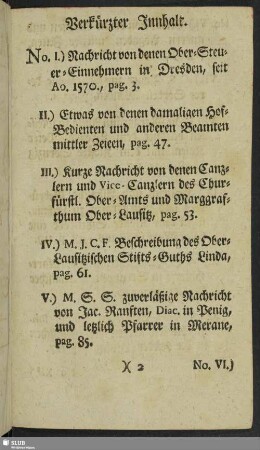 Verkürzter Innhalt.
No. I.) Nachricht von denen Ober-Steu-
er-Einnehmern in Dresden, seit
Ao. 1570., pag. 3.
II.) Etwas von denen damaligen Hof-
Bedienten und anderen Beamten
mittler Zeiten, pag. 47.
III.) Kurze Nachricht von denen Canz-
lern und Vice-Canzlern des Chur-
fürstl. Ober-Amts und Marggraf-
thum Ober-Lausitz, pag. 53.
IV.) M. J. C. F. Beschreibung des Ober-
Lausitzischen Stifts-Guths Linda,
pag. 61.
V.) M. S. S. zuverläßige Nachricht
von Jac. Ranften, Diac. in Penig,
und letzlich Pfarrer in Merane,
pag. 85.
)( 2 No. VI.)
SLUB